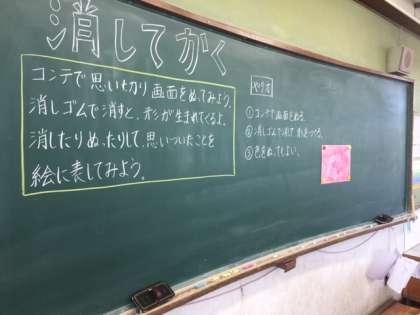 消してかく
コンテで思い切り画面をぬってみよう。
消しゴムで消すと、形が生まれてくるよ。
消したりぬったりして、思いついたことを
絵に表してみよう。
やり方
①コンテで画面をぬる。
②消しゴムで消して、形をつくる。
③色をぬってもよい。